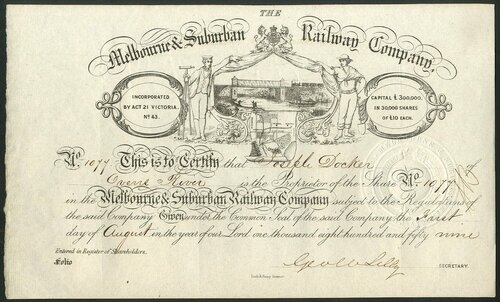 THE
Melbourne & Suburban Railway Company,
INCORPORATED
BY ACT 21 VICTORIA.
No. 43.
CAPITAL £300,000.
IN 30,000 SHARES
OF £10 EACH.
No. 1077 This is to Certify that Joseph Docker of
Ovens River is the Proprietor of the Share No. 1077
in the Melbourne & Suburban Railway Company subject to the Regulations of
the said Company Given under the Common Seal of the said Company the First
day of August in the year of our Lord one thousand eight hundred and fifty nine
Entered in Register of Shareholders.
Folio
Geo W Lilly SECRETARY.